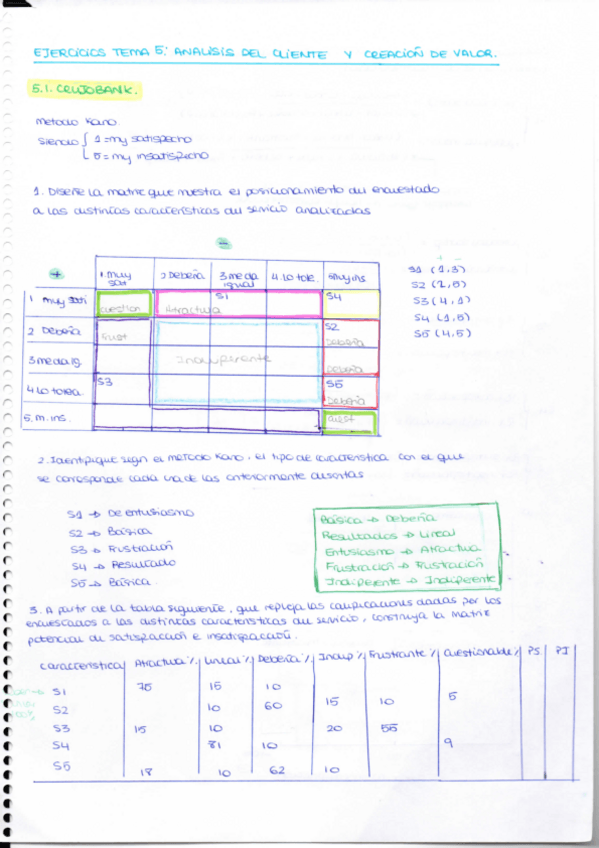 EJERCICIOS TEMA 5: ANALISIS DEL CLIENTE Y CREACIÓN DE VALOR.
5.1. CRUJOBANK.
Metodo Kano
siendo { 1=muy satisfecho
5=muy insatisfecho
1. Diseñe la matriz que muestra el posicionamiento del encuestado
a las distintas características del servicio analizadas
-
+ 1. muy sat 2 Debería 3 me da igual 4. Lo tole. 5 Muy ins
1 muy sati cuestion Atractiva S1 S4
2 Debería Frust S2 Debería
3 me da ig. Indiferente Debería
4 Lo tolea. S3 S5 Debería
5. m. ins. cuest
S1 (1,3)
S2 (2,5)
S3 (4,1)
S4 (1,5)
S5 (4,5)
2. Identifique según el metodo Kano, el tipo de característica con el que
se corresponde cada una de las anteriormente descritas
S1 → De entusiasmo
S2 → Básica
S3 → Frustración
S4 → Resultado
S5 → Básica.
Básica → Debería
Resultados → Lineal
Entusiasmo → Atractiva
Frustración → Frustración
Indiferente → Indiferente
3. A partir de la tabla siguiente, que refleja las calificaciones dadas por los
encuestados a las distintas características del servicio, construya la matriz
potencial de satisfacción e insatisfacción.
característica Atractiva % Lineal % Debería % Indif % Frustrante % Cuestionable % PS PI
S1 75 15 10
S2 10 60 15 10 5
S3 15 10 20 55
S4 81 10 9
S5 18 10 62 10